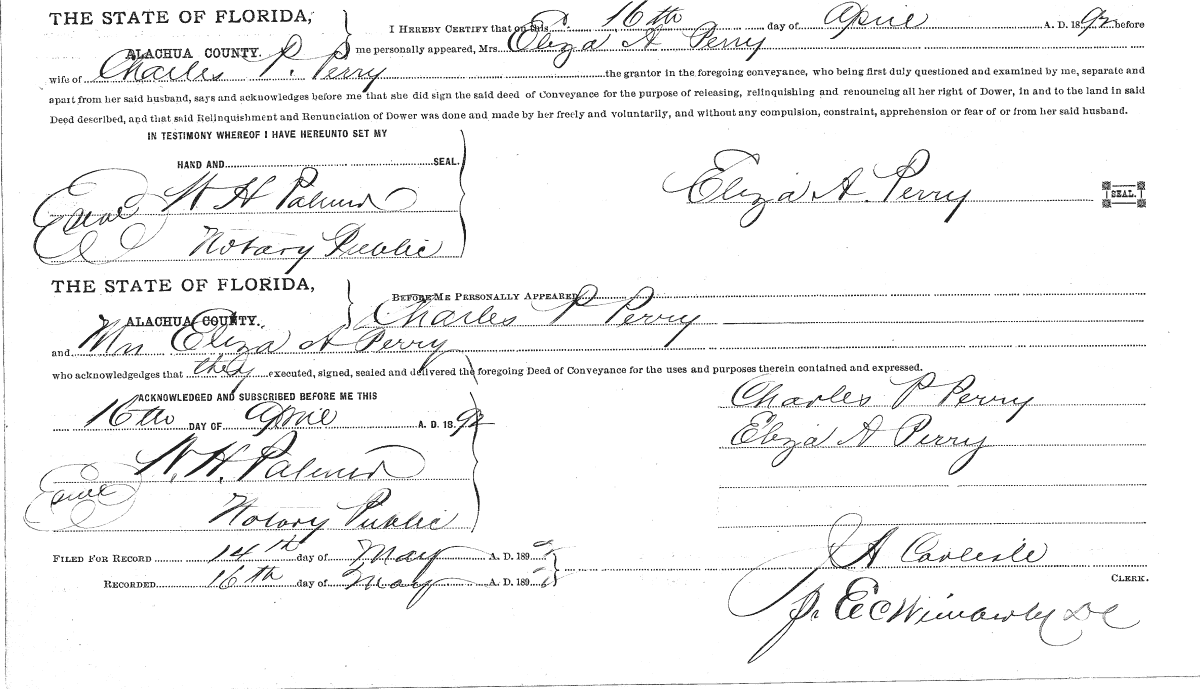 THE STATE OF FLORIDA,
ALACHUA COUNTY.
I HEREBY CERTIFY that on this 16th day of April A. D. 1892 before
me personally appeared, Mrs. Eliza A Perry
wife of Charles P. Perry the grantor in the foregoing conveyance, who being first duly questioned and examined by me, separate and
apart from her said husband, says and acknowledges before me that she did sign the said deed of Conveyance for the purpose of releasing, relinquishing and renouncing all her right of Dower, in and to the land in said
Deed described, and that said Relinquishment and Renunciation of Dower was done and made by her freely and voluntarily, and without any compulsion, constraint, apprehension or fear of or from her said husband.
IN TESTIMONY WHEREOF I HAVE HEREUNTO SET MY
HAND AND SEAL.
W H Palmer
Notary Public
Eliza A. Perry
SEAL.
THE STATE OF FLORIDA,
ALACHUA COUNTY.
BEFORE ME PERSONALLY APPEARED
Charles P Perry
and Mrs Eliza A Perry
who acknowledgedges that they executed, signed, sealed and delivered the foregoing Deed of Conveyance for the uses and purposes therein contained and expressed.
ACKNOWLEDGED AND SUBSCRIBED BEFORE ME THIS
16th DAY OF April A. D. 1892
W. H. Palmer
Notary Public
Charles P Perry
Eliza A Perry
FILED FOR RECORD 14th day of May A. D. 189
RECORDED 16th day of May A. D. 189
A Carlisle
CLERK.
E C Wimberly DC